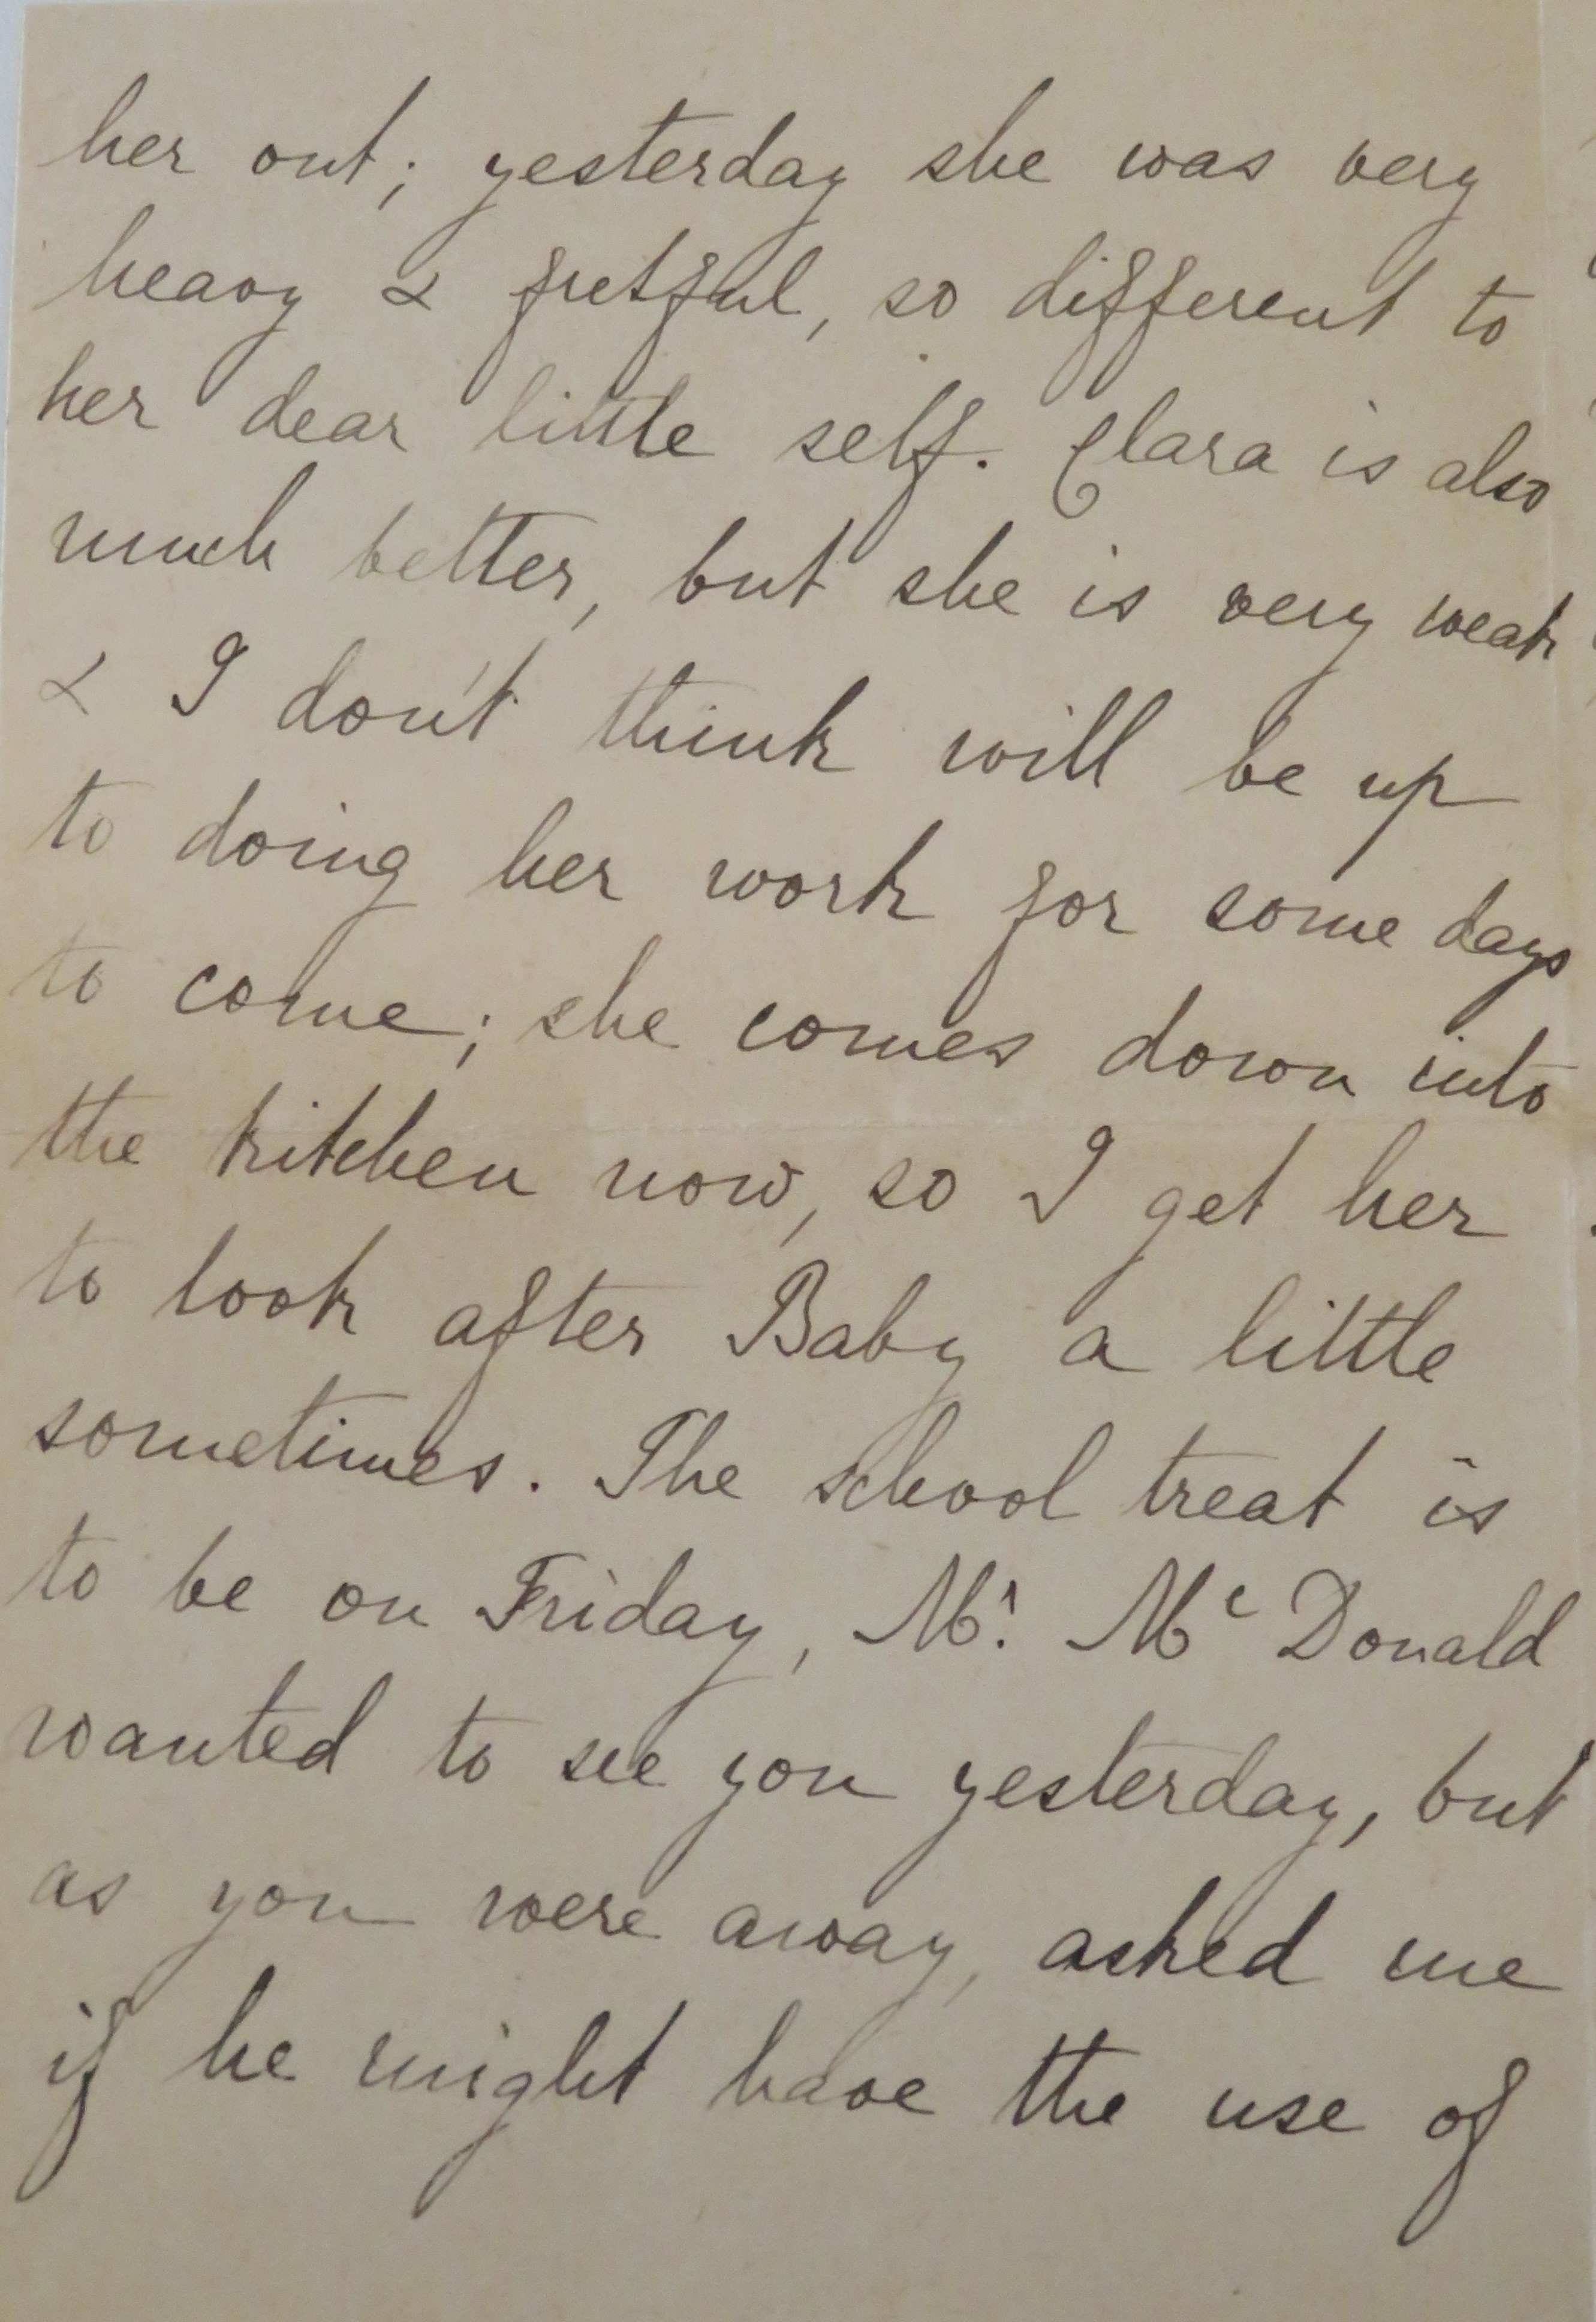 her out; yesterday she was very
heavy & fretful, so different to
her dear little self. Clara is also
much better, but she is very weak
& I don't think will be up
to doing her work for some days
to come; she comes down into
the kitchen now, so I get her
to look after Baby a little
sometimes. The school treat is
to be on Friday, Mr. McDonald
wanted to see you yesterday, but
as you were away, asked me
if he might have the use of